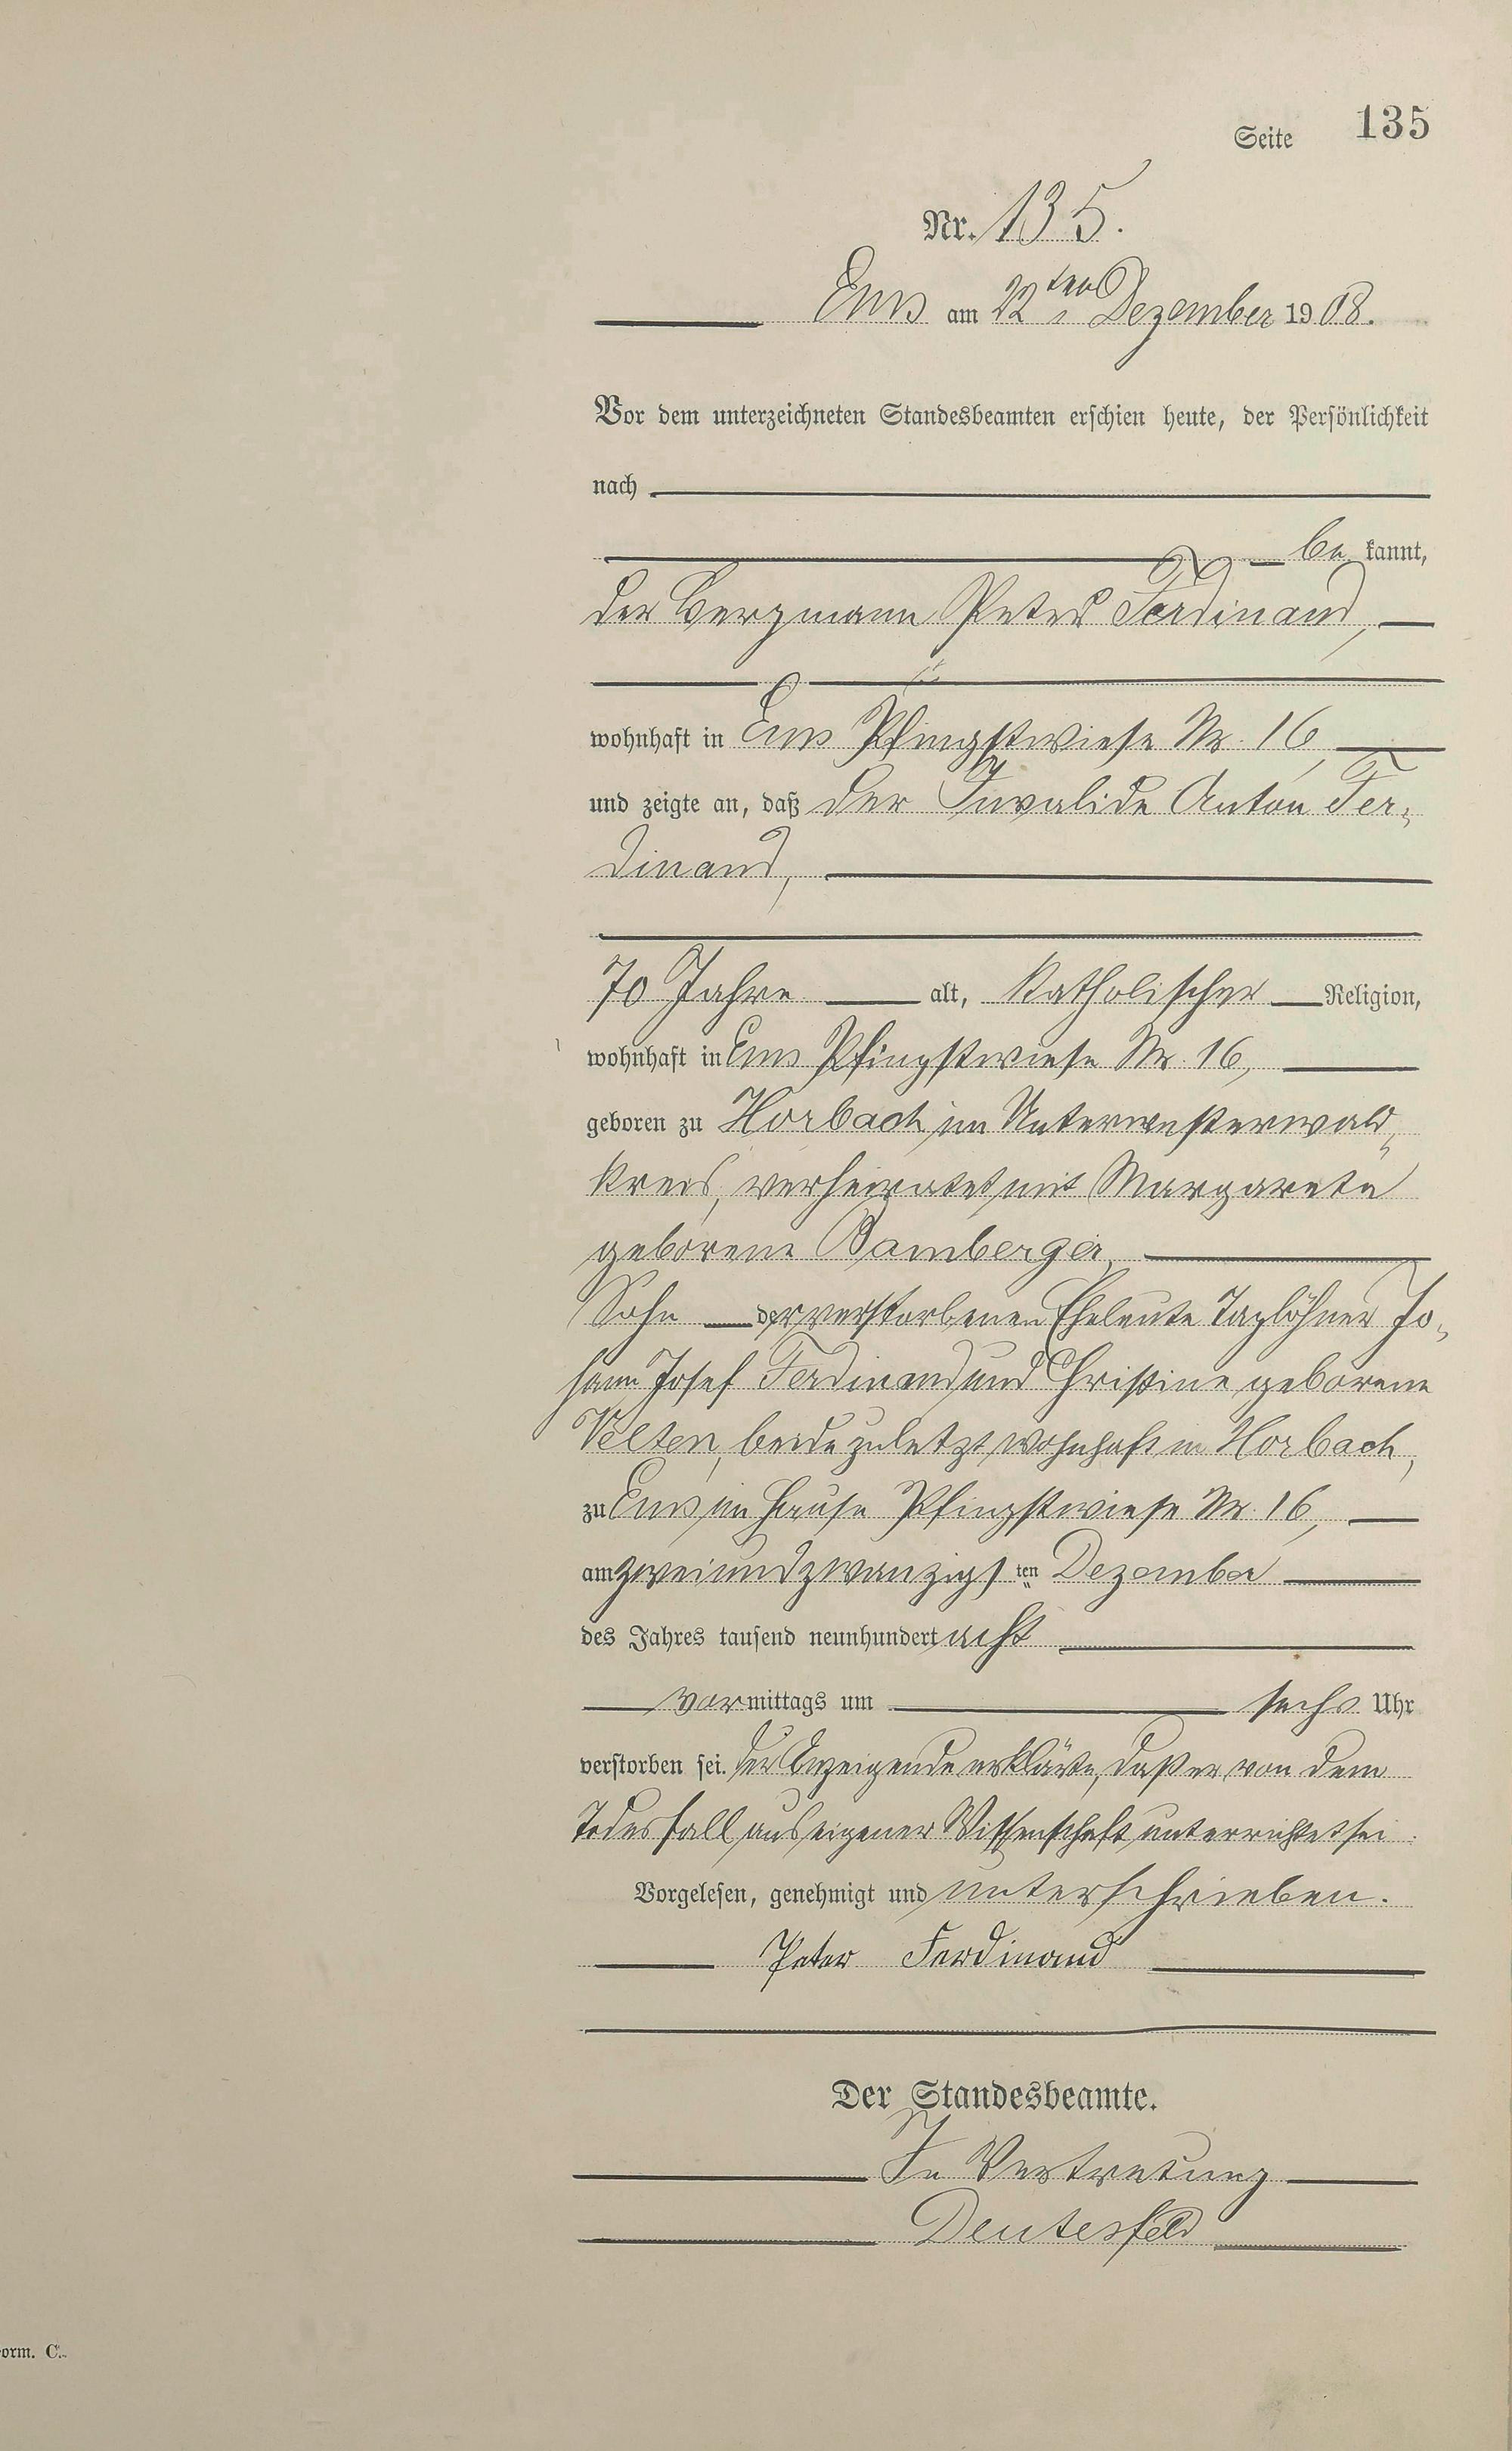 Seite 135
Nr. 135.
Ems am 22ten Dezember 1908.
Vor dem unterzeichneten Standesbeamten erschien heute, der Persönlichkeit
nach
be kannt,
der Bergmann Peter Ferdinand,
wohnhaft in Ems Pfingstwiese Nr. 16,
und zeigte an, daß der Invalide Anton Fer-
dinand,
70 Jahre alt, katholischer Religion,
wohnhaft in Ems Pfingstwiese Nr. 16,
geboren zu Horbach im Unterwesterwald-
kreis, verheiratet mit Margarete
geborene Bamberger,
Sohn der verstorbenen Eheleute Taglöhner Jo-
hann Josef Ferdinand und Christine geborene
Velten, beide zuletzt wohnhaft in Horbach,
zu Ems im Hause Pfingstwiese Nr. 16,
am zweiundzwanzigsten Dezember
des Jahres tausend neunhundert acht
vormittags um sechs Uhr
verstorben sei. Der Anzeigende erklärte, daß er von dem
Todesfall aus eigener Wissenschaft unterrichtet sei.
Vorgelesen, genehmigt und unterschrieben.
Peter Ferdinand
Der Standesbeamte.
In Vertretung
Deutesfeld
orm. C.